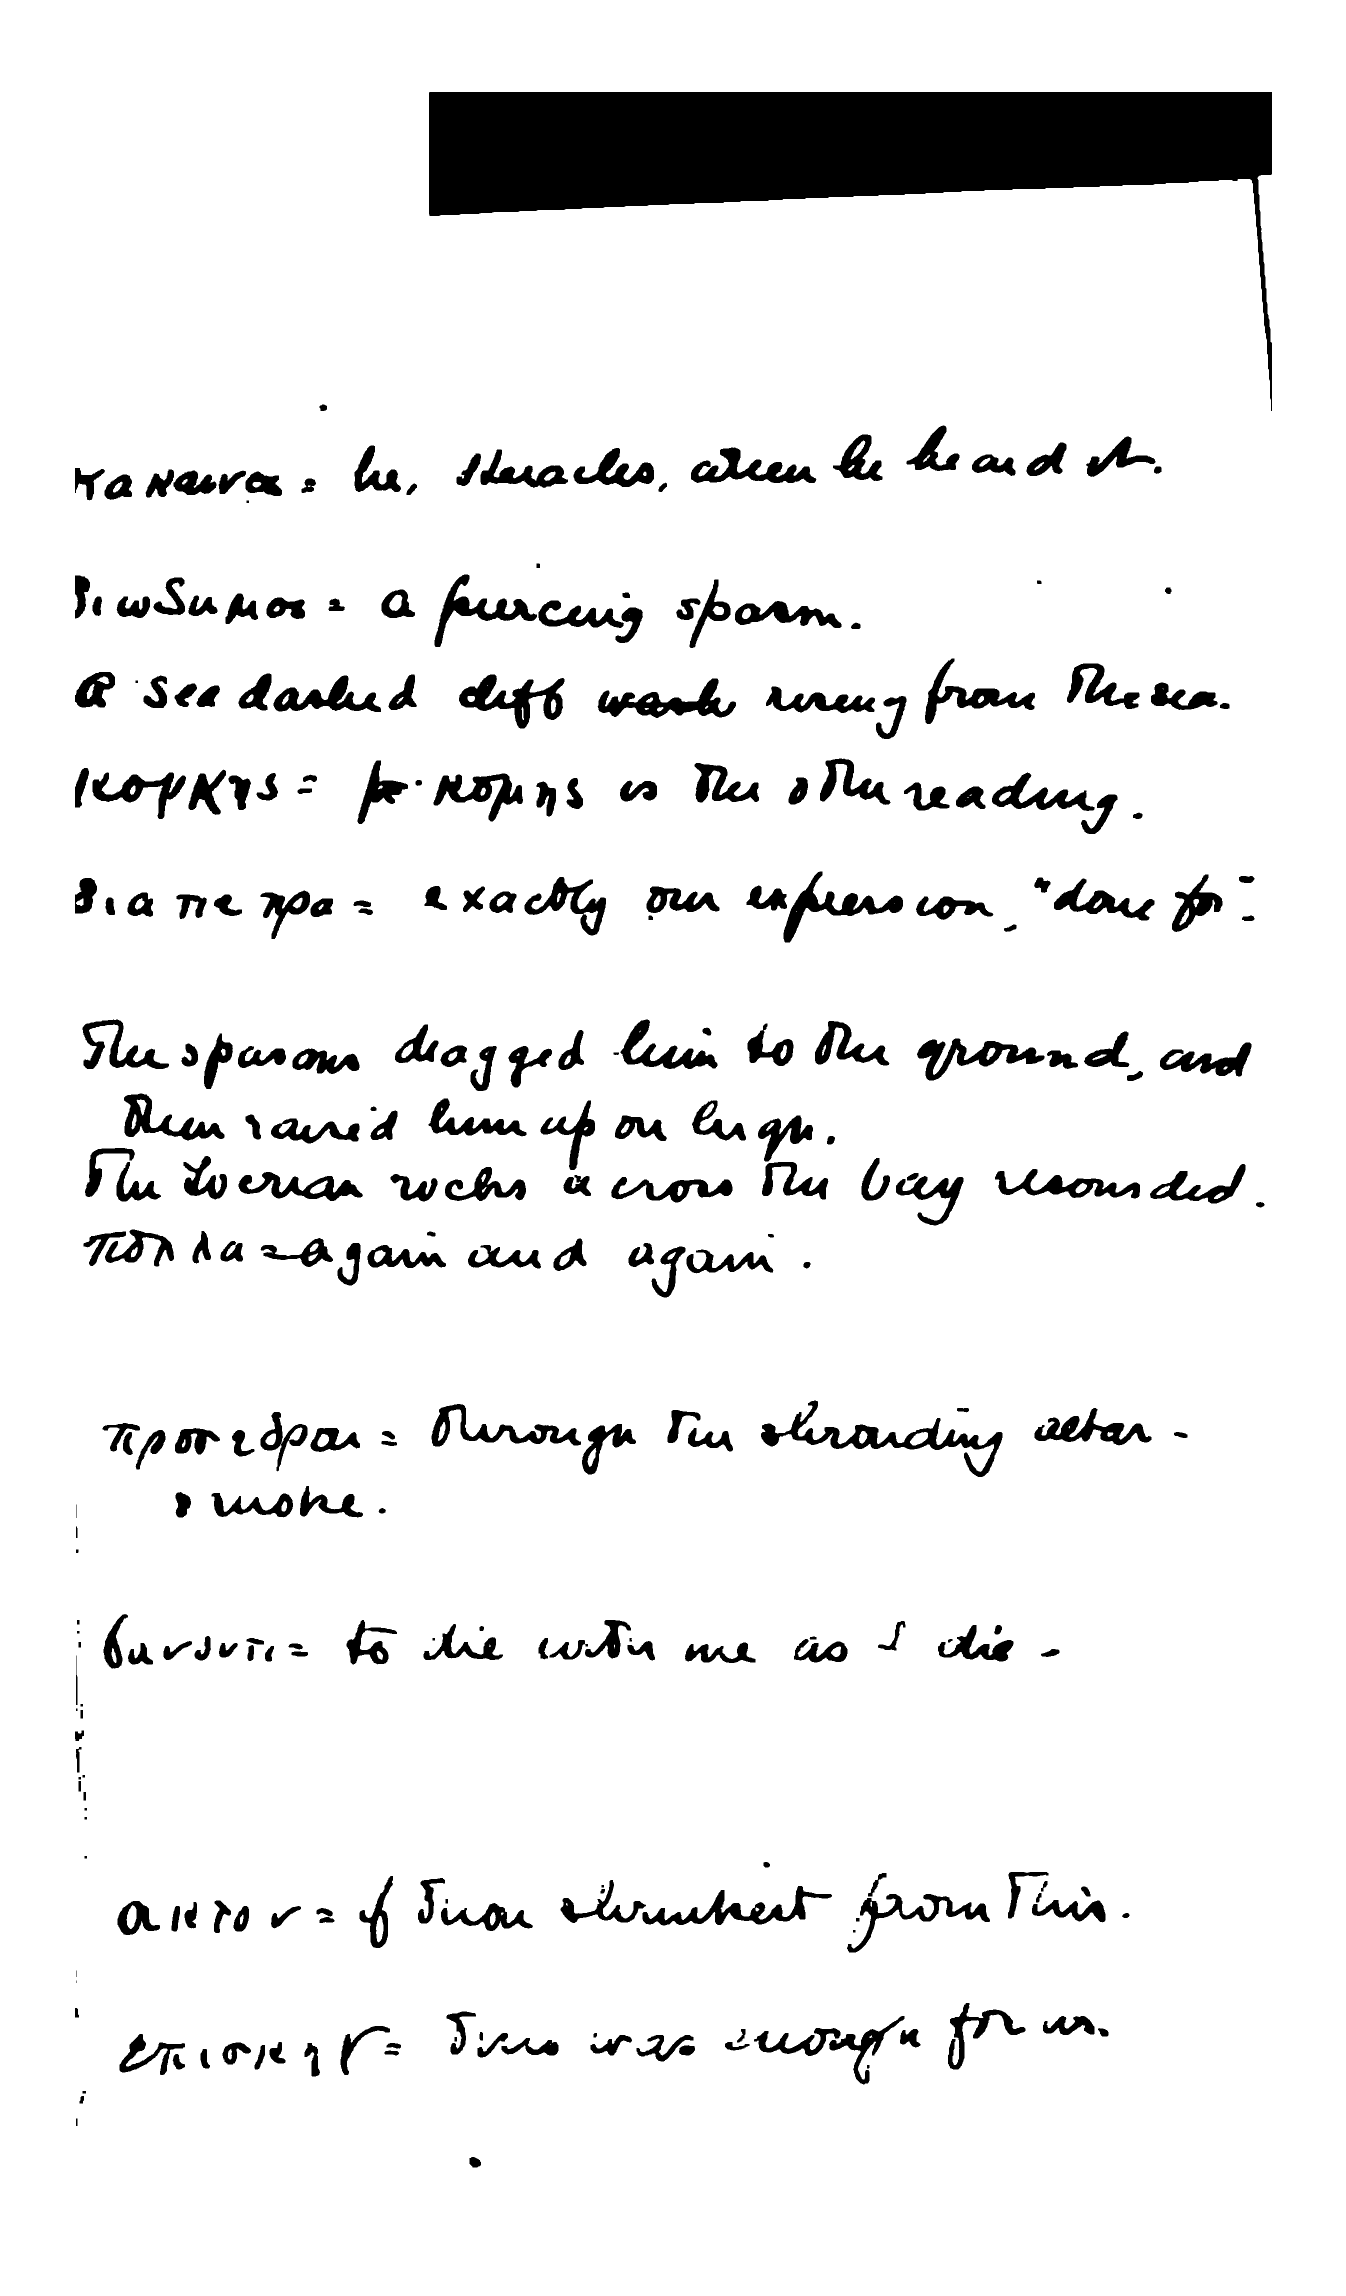 κακεινος = he, Heracles, when he heard it.
διωδυνος = a piercing spasm.
A sea dashed cliff wash rising from the sea.
κορμης = κομης is the other reading.
διαπεπρα = exactly our expression, "done for".
The spasms dragged him to the ground, and
then raised him up on high.
The Locrian rocks across the bay resounded.
πολλα = again and again.
προσεδρου = through the shrouding altar-
smoke.
θανοντι = to die with me as I die -
ακτον = if thou shrinkest from this.
επισκηψ = this was enough for us.